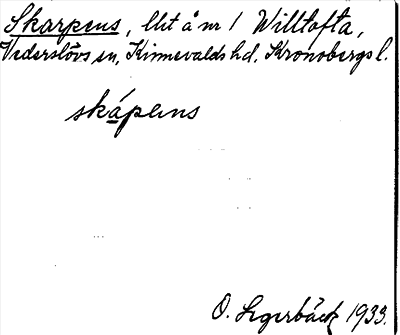 Skarpens, lht å nr 1 Willtofta,
Vederslövs sn, Kinnevalds hd. Kronobergs l.
skápens
O. Segerbäck 1933.